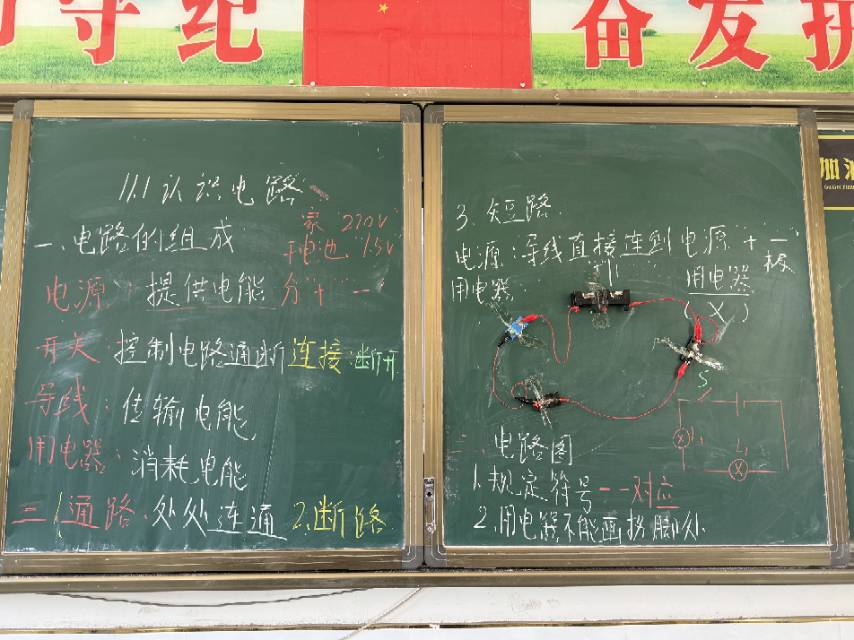 守纪
奋发
加油
11.1 认识电路
家 220V
一、电路的组成
干电池 1.5V
电源: 提供电能 分 + 一
开关: 控制电路通断 连接 断开
导线: 传输电能
用电器: 消耗电能
二、1.通路 处处连通 2.断路
3. 短路
电源: 导线直接连到电源 + 一极
用电器
用电器
(X)
S
L1
三、电路图
1.规定符号一一对应
2.用电器不能画拐脚处